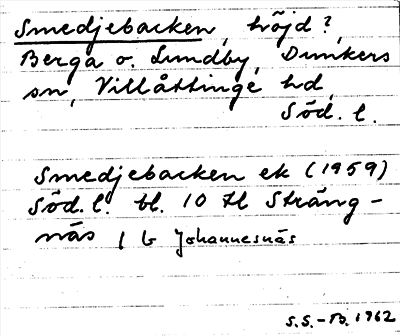 Smedjebacken, höjd?,
Berga o. Lundby, Dunkers
sn, Villåttinge hd,
Söd. l.
Smedjebacken ek (1959)
Söd. l. bl. 10 tl Sträng-
näs / b Johannesnäs
S.S.-B. 1962